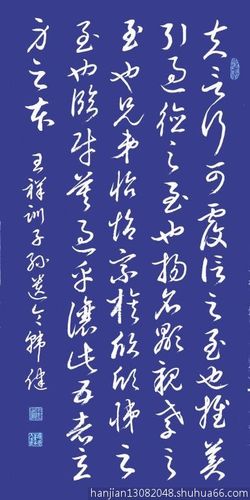 夫言行可覆信之至也推美
引过德之至也扬名显亲孝之
至也兄弟怡怡宗族欣欣悌之
至也临财莫过乎让此五者立
身之本
王祥训子孙遗令韩健
hanjian13082048.shuhua66.com